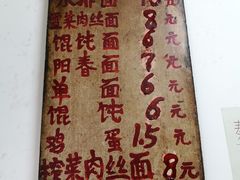 菜肉丝面 8元
馄饨面 6元
阳春面 7元
单面 6元
馄饨 6元
鸡蛋 1.5元
榨菜肉丝面 8元